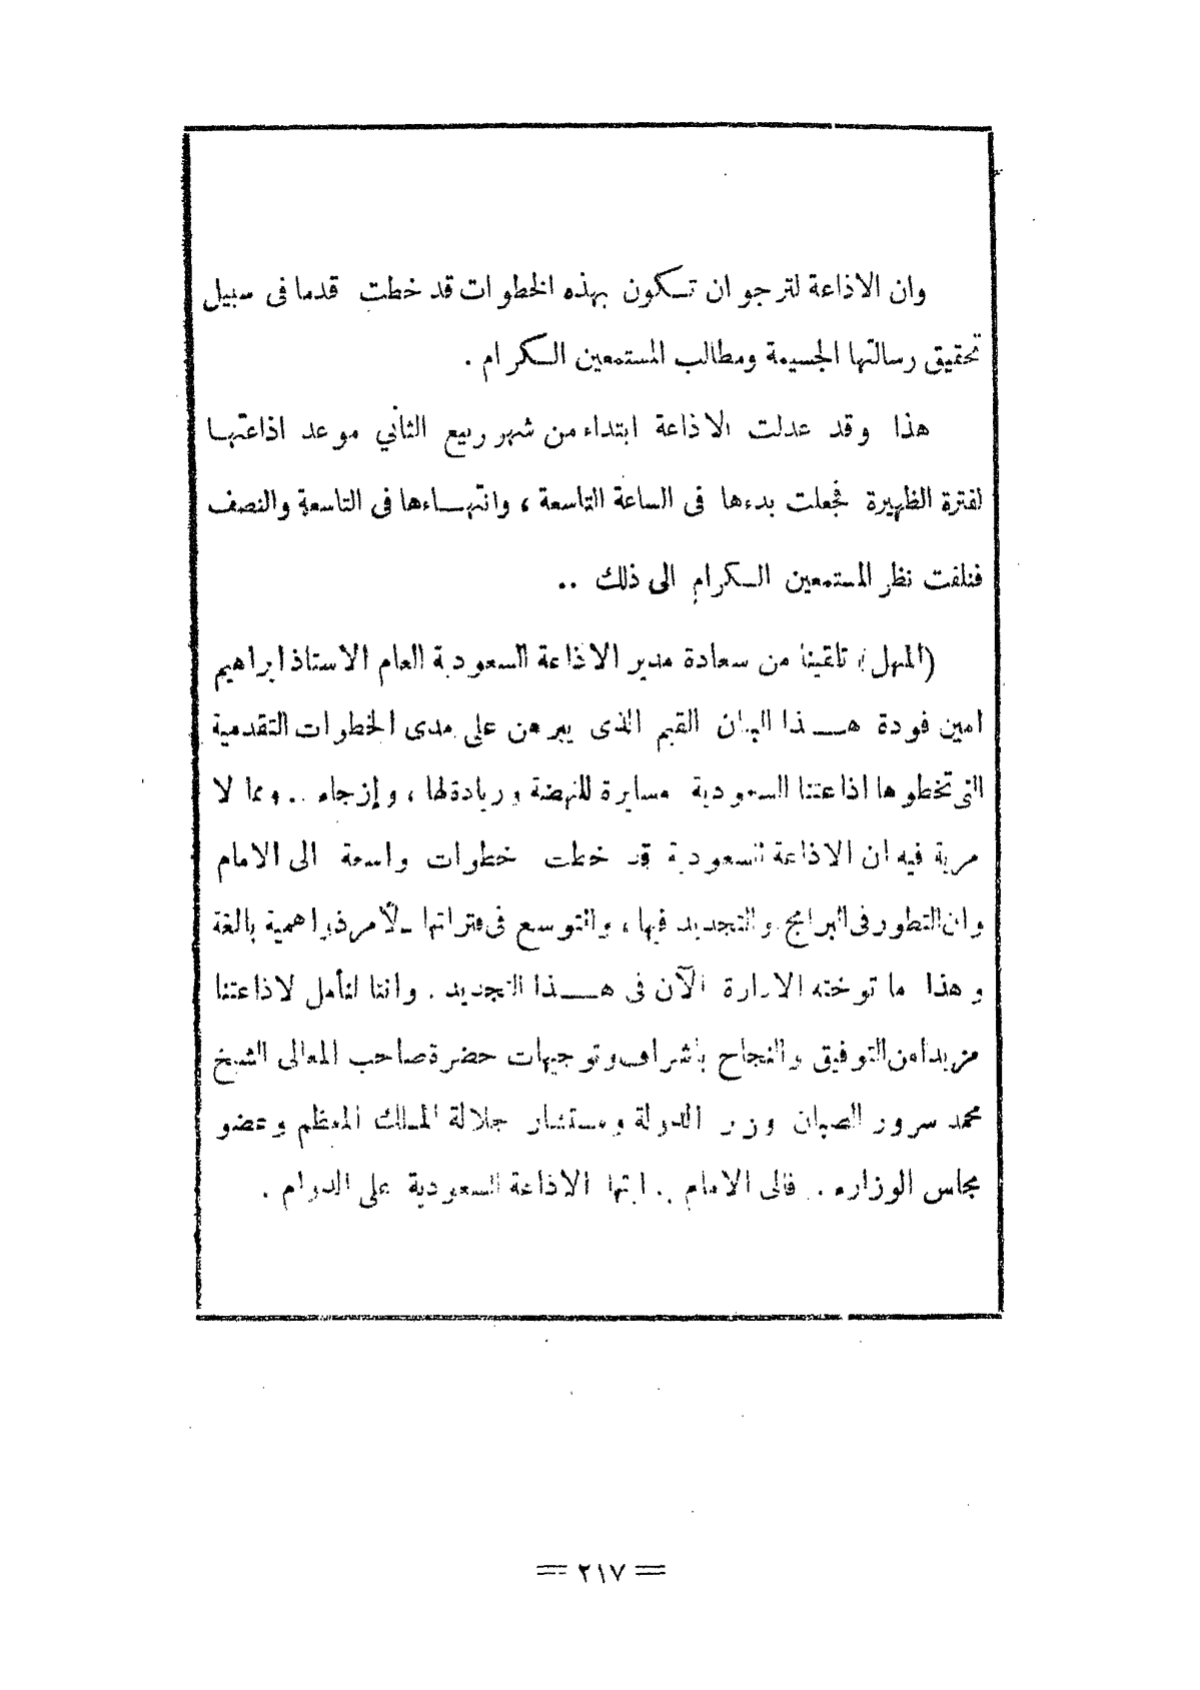 وان الاذاعة لترجو ان تكون بهذه الخطوات قد خطت قدما فى سبيل
تحقيق رسالتها الجسيمة ومطالب المستمعين الكرام .
هذا وقد عدلت الاذاعة ابتداء من شهر ربيع الثاني موعد اذاعتها
لفترة الظهيرة فجعلت بدءها فى الساعة التاسعة ، وانتهاءها فى التاسعة والنصف
فنلفت نظر المستمعين الكرام الى ذلك ..
(المنهل) تلقينا من سعادة مدير الاذاعة السعودية العام الاستاذ ابراهيم
امين فودة هذا البيان القيم الذى يبرهن على مدى الخطوات التقدمية
التى تخطوها اذاعتنا السعودية مسايرة للنهضة وريادة لها ، وإزجاء .. ومما لا
مرية فيه ان الاذاعة السعودية قد خطت خطوات واسعة الى الامام
وان التطور فى البرامج والتجديد فيها ، والتوسع فى فتراتها لأمر ذو اهمية بالغة
وهذا ما توخته الادارة الآن فى هذا التجديد . واننا لنأمل لاذاعتنا
مزيدا من التوفيق والنجاح باشراف وتوجيهات حضرة صاحب المعالى الشيخ
محمد سرور الصبان وزير الدولة ومستشار جلالة الملك المعظم وعضو
مجلس الوزراء . فالى الامام .. ايتها الاذاعة السعودية على الدوام .
== ٢١٧ ==